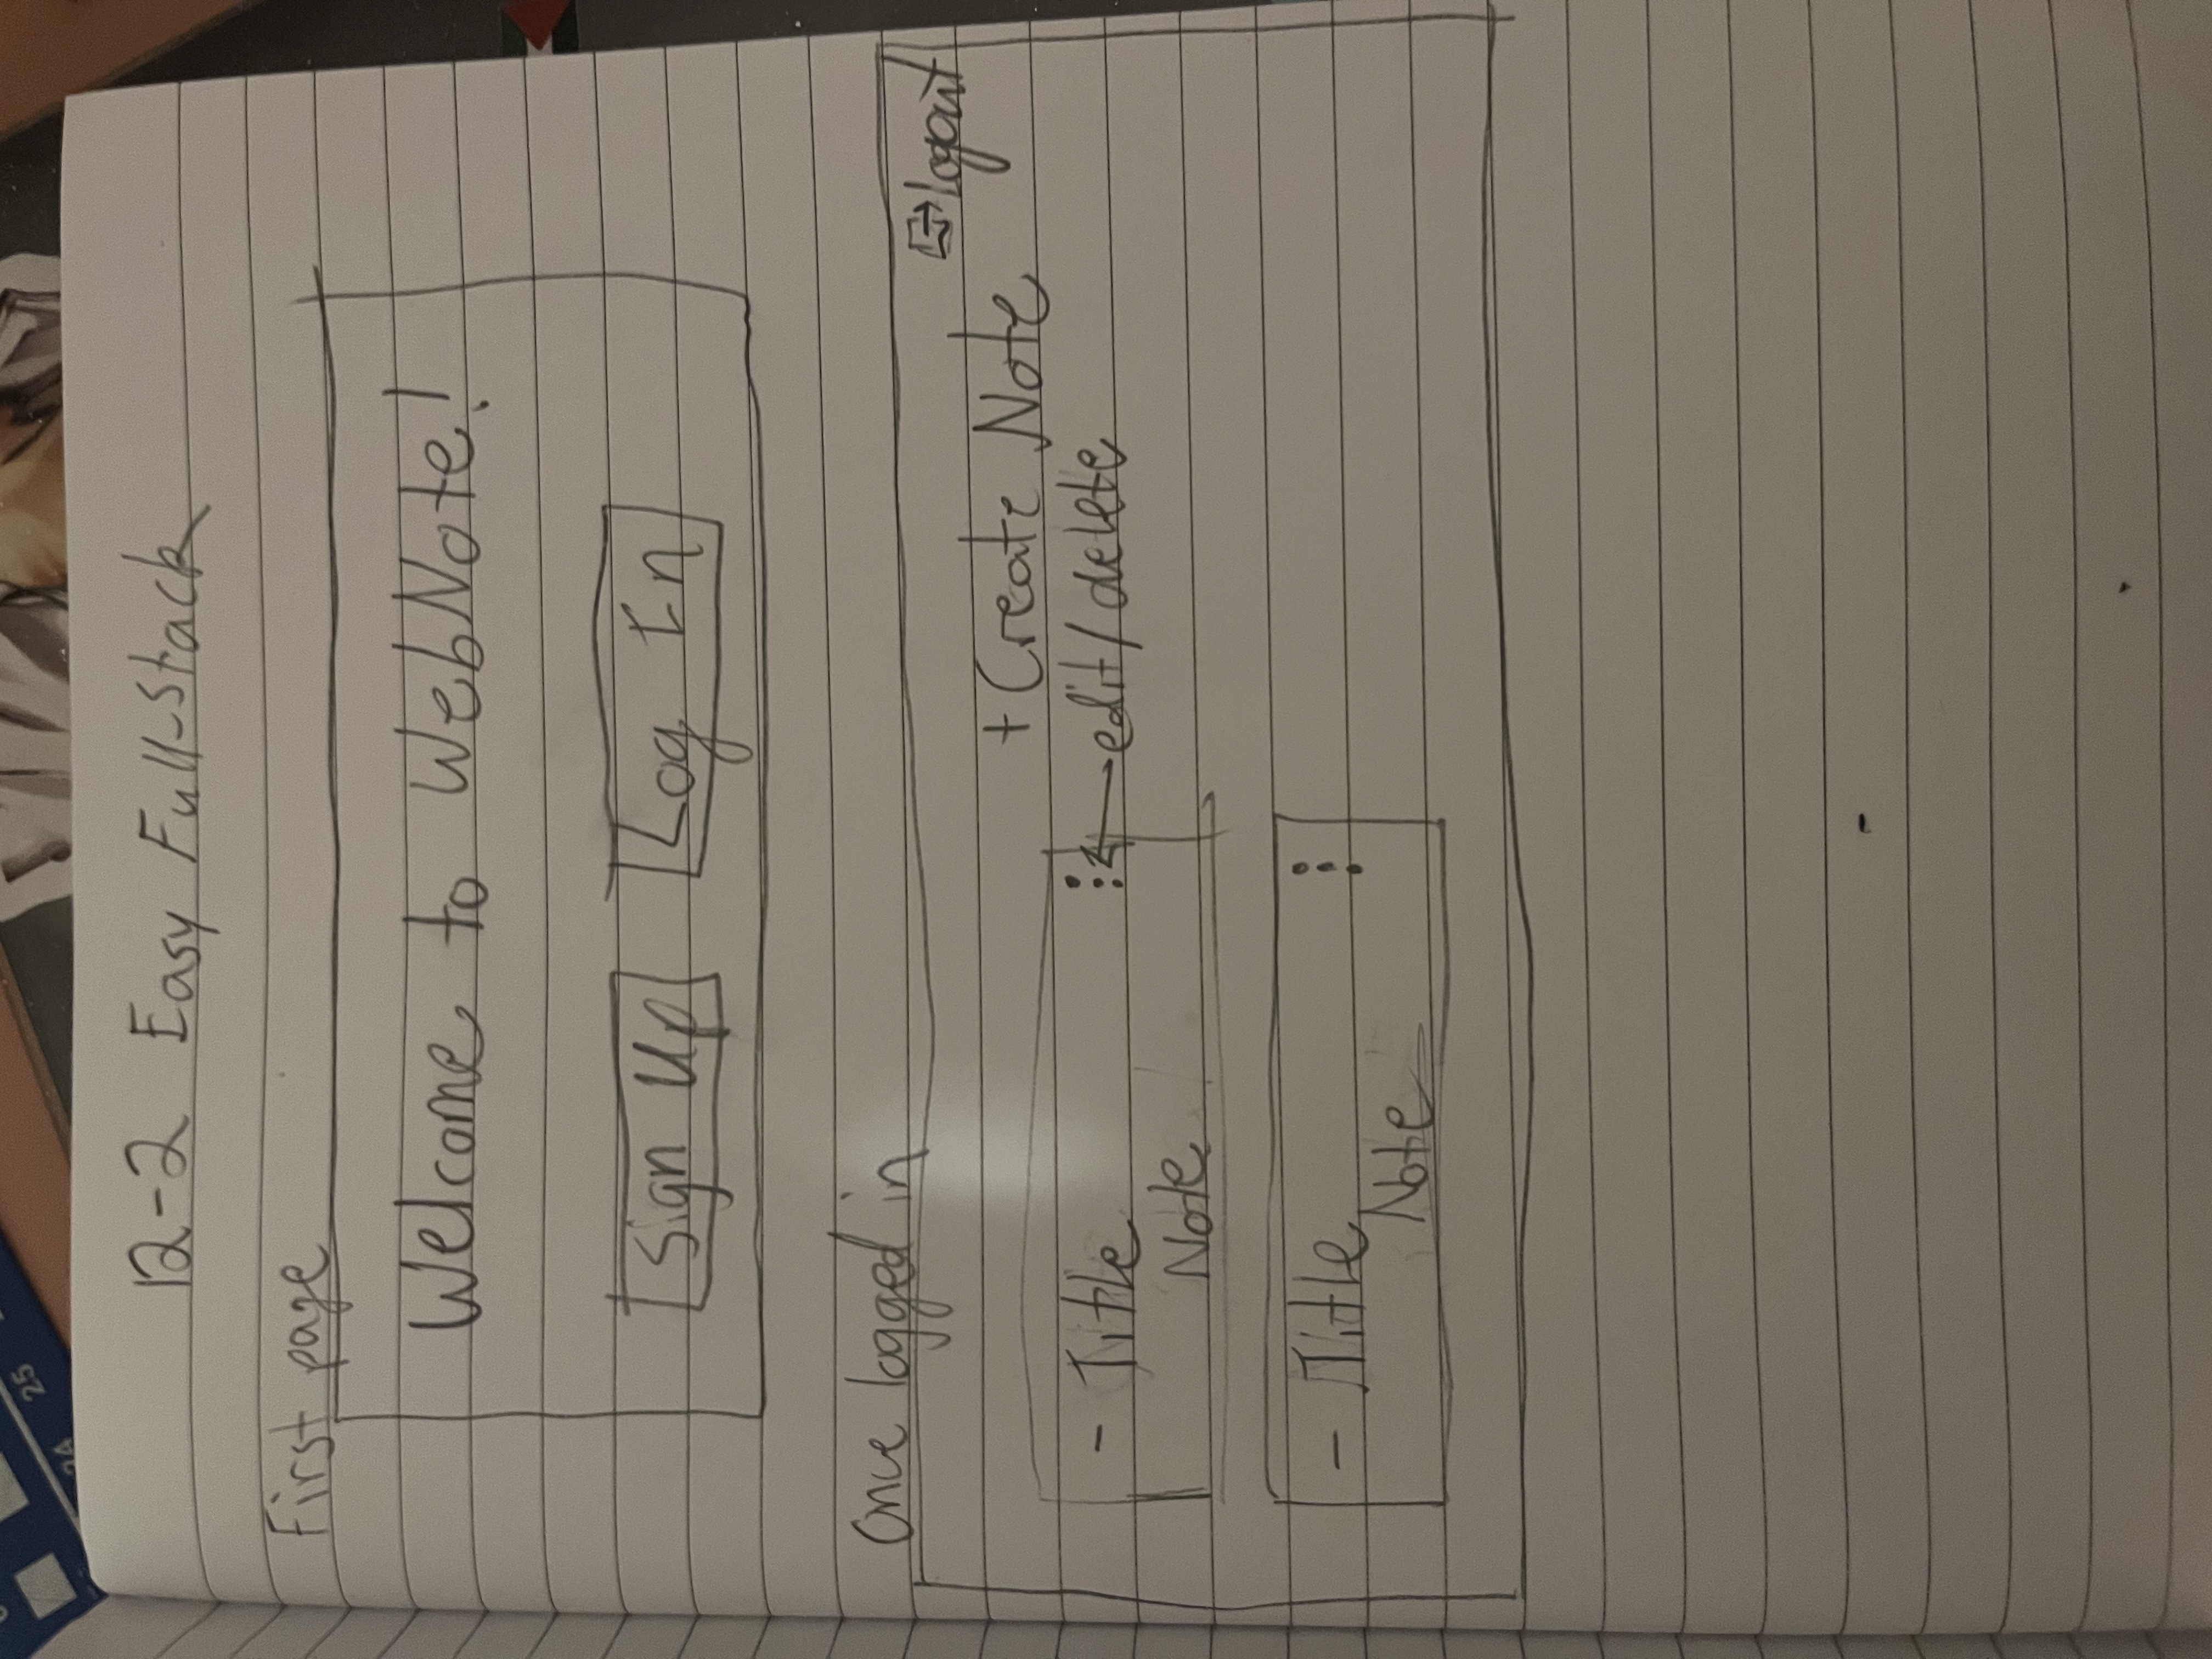 25
24
12-2 Easy Full-Stack
First page
Welcome to WebNote!
Sign Up Log In
Once logged in
Logout
+ Create Note
- Title edit/delete
Note
- Title
Note